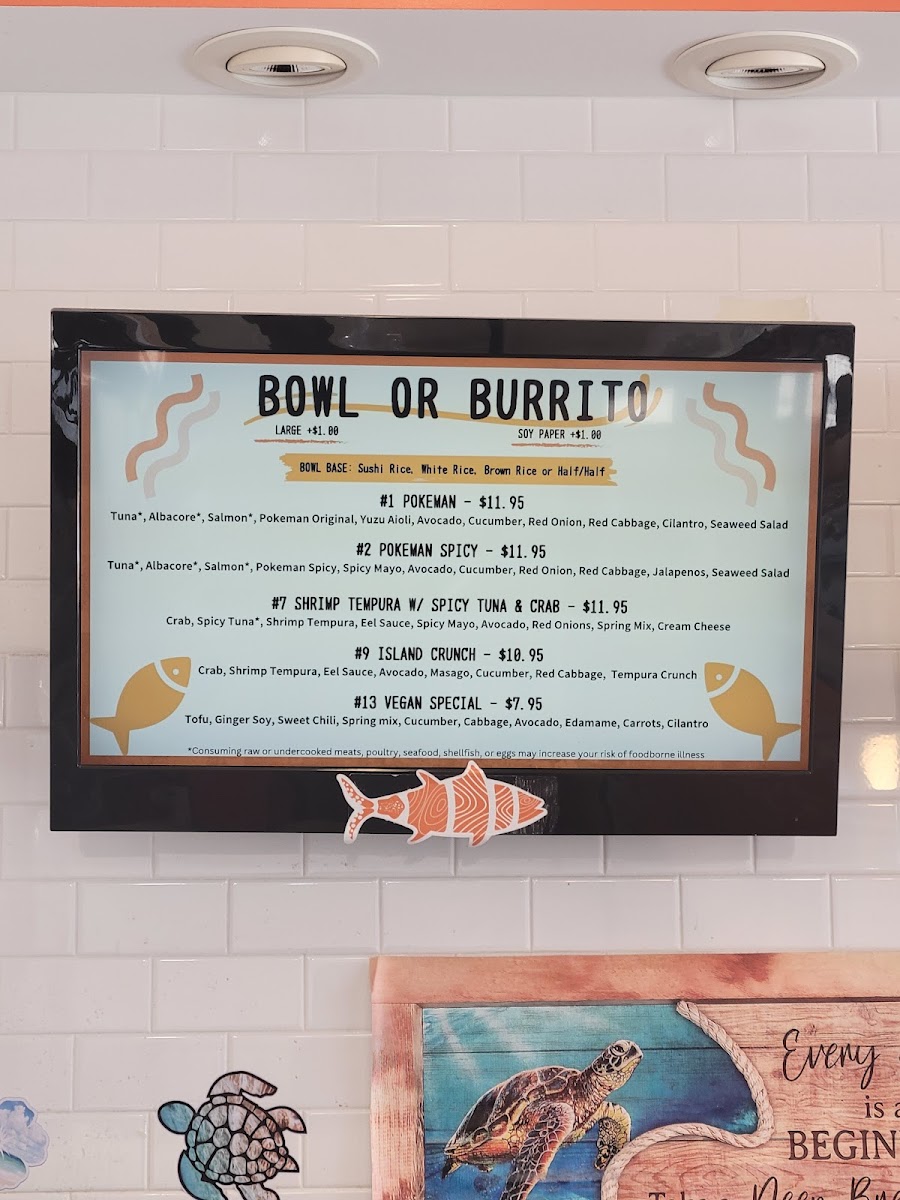 BOWL OR BURRITO
LARGE +$1.00
SOY PAPER +$1.00
BOWL BASE: Sushi Rice, White Rice, Brown Rice or Half/Half
#1 POKEMAN - $11.95
Tuna*, Albacore*, Salmon*, Pokeman Original, Yuzu Aioli, Avocado, Cucumber, Red Onion, Red Cabbage, Cilantro, Seaweed Salad
#2 POKEMAN SPICY - $11.95
Tuna*, Albacore*, Salmon*, Pokeman Spicy, Spicy Mayo, Avocado, Cucumber, Red Onion, Red Cabbage, Jalapenos, Seaweed Salad
#7 SHRIMP TEMPURA W/ SPICY TUNA & CRAB - $11.95
Crab, Spicy Tuna*, Shrimp Tempura, Eel Sauce, Spicy Mayo, Avocado, Red Onions, Spring Mix, Cream Cheese
#9 ISLAND CRUNCH - $10.95
Crab, Shrimp Tempura, Eel Sauce, Avocado, Masago, Cucumber, Red Cabbage, Tempura Crunch
#13 VEGAN SPECIAL - $7.95
Tofu, Ginger Soy, Sweet Chili, Spring mix, Cucumber, Cabbage, Avocado, Edamame, Carrots, Cilantro
*Consuming raw or undercooked meats, poultry, seafood, shellfish, or eggs may increase your risk of foodborne illness
Every
is a
BEGIN